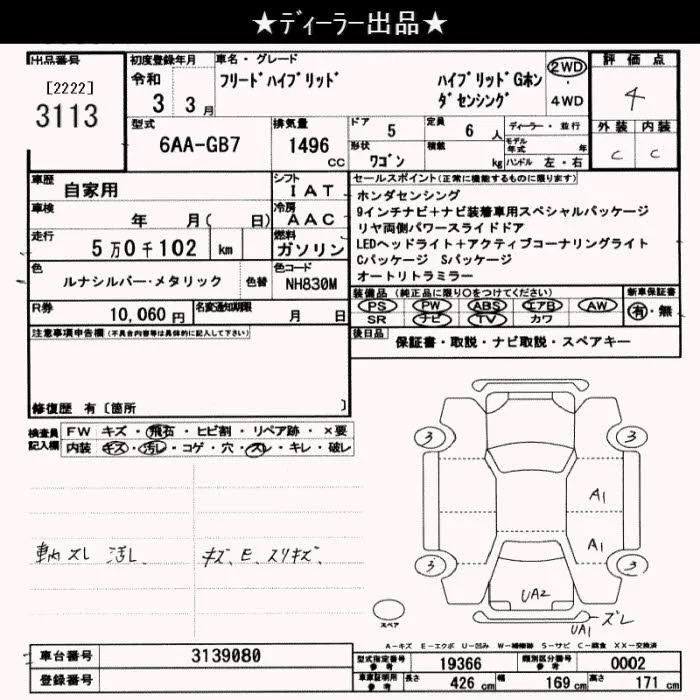 ★ディーラー出品★
出品番号
[2222]
3113
初度登録年月
令和
3 3 月
車名・グレード
フリードハイブリッド
ハイブリッドGホン
ダセンシング
2WD
・
4WD
評価点
4
外装 内装
C C
型式
6AA-GB7
排気量
1496
cc
ドア
5
定員
6 人
形状
ワゴン
積載
kg
ディーラー・並行
モデル年式 年
ハンドル 左・右
車歴
自家用
シフト
I A T
車検
年 月( 日)
冷房
A A C
走行
5 万 0 千 102 km
燃料
ガソリン
色
ルナシルバー・メタリック
色替
色コード
NH830M
R券
10,060 円
名変通知期限
月 日
セールスポイント(正常に機能するものに限ります)
ホンダセンシング
9インチナビ+ナビ装着車用スペシャルパッケージ
リヤ両側パワースライドドア
LEDヘッドライト+アクティブコーナリングライト
Cパッケージ Sパッケージ
オートリトラミラー
装備品 (純正品に限り〇をつけてください)
新車保証書
PS PW ABS エアB AW
SR ナビ TV カワ
有・無
後日品
保証書・取説・ナビ取説・スペアキー
注意事項申告欄(不具合内容等は具体的に記入して下さい)
修復歴 有〔箇所 〕
検査員
記入欄
FW キズ・飛石・ヒビ割・リペア跡・×要
内装 キズ・汚レ・コゲ・穴・スレ・キレ・破レ
車内 スレ 汚レ、
キズ、E、スリキズ、
3 3
A1
A1
3 3
UA2
スレ
UA1
スペア
A-キズ E-エクボ U-凹み W-補修跡 S-サビ C-腐食 XX-交換済
車台番号
3139080
登録番号
型式指定番号
参考
19366
類別区分番号
参考
0002
車庫証明用
参考
長さ
426 cm
幅
169 cm
高さ
171 cm